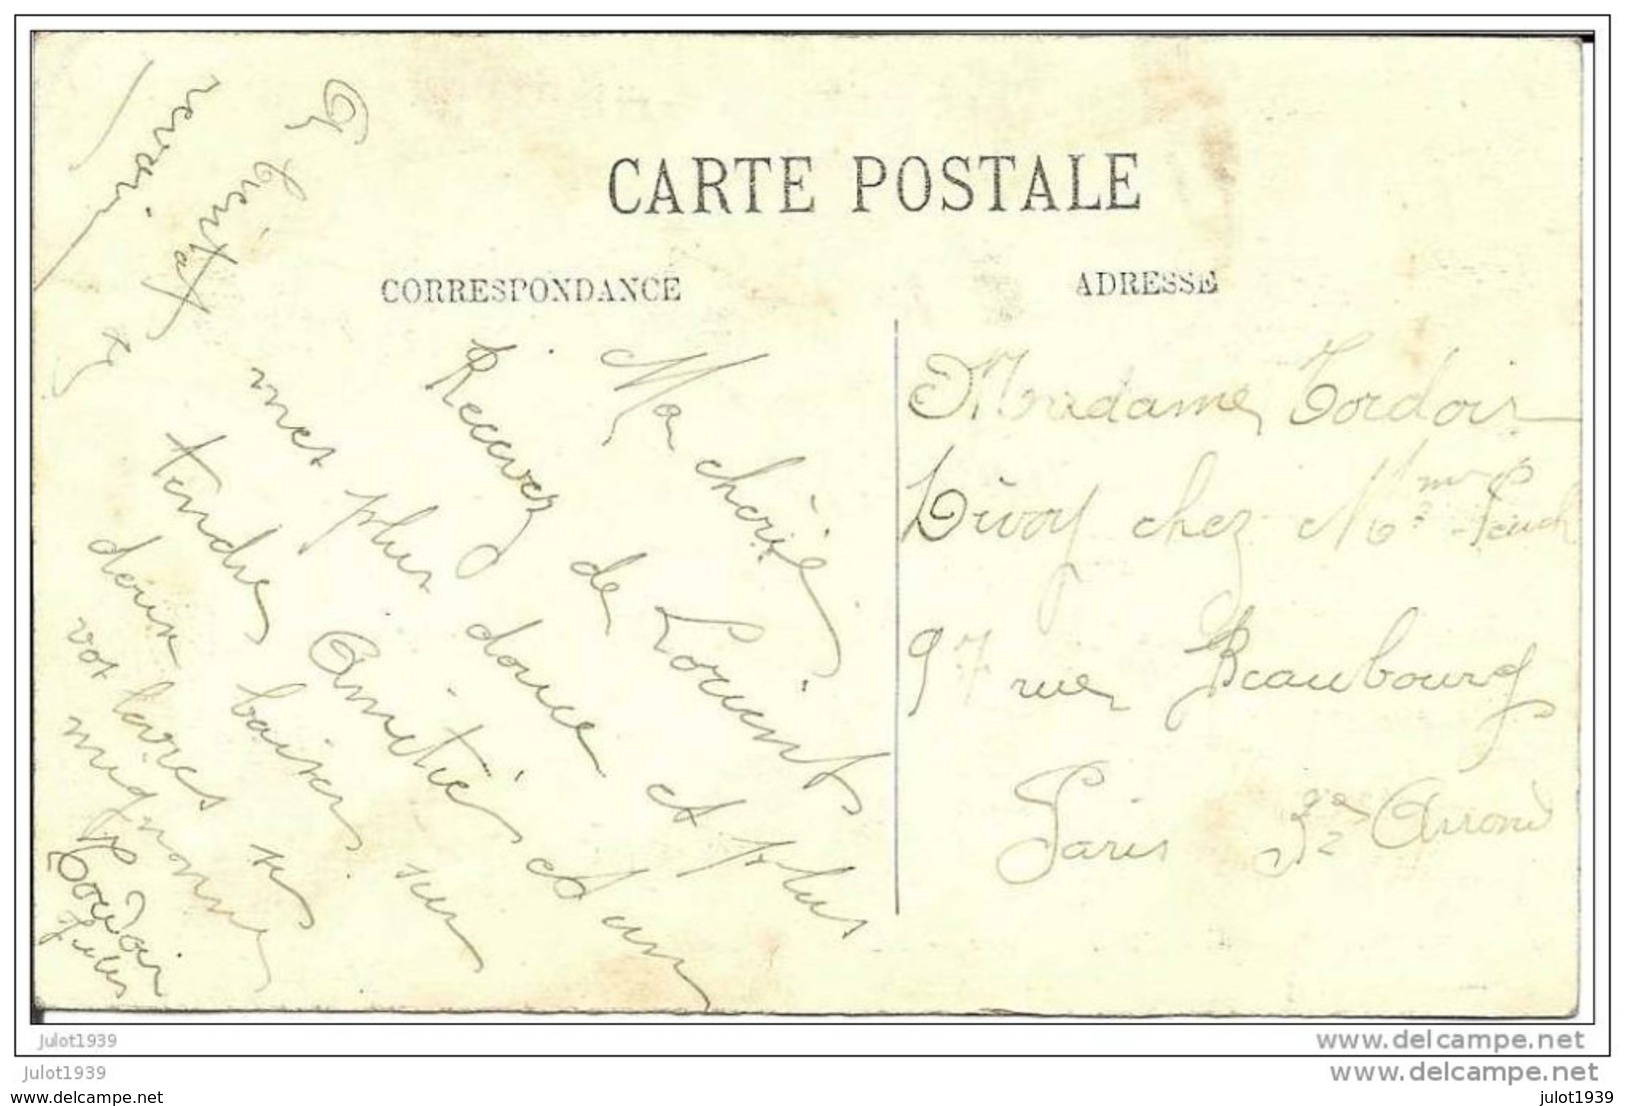 CARTE POSTALE
CORRESPONDANCE
ADRESSE
Ma chérie
Recevez de Lorient
mes plus douce et plus
tendre Amitiés et un
doux baiser sur
vos lèvres si
mignonne
Tordoir
Jules
A bientôt
revoir
Madame Tordoir
Livoy chez Mme
97 rue Beaubourg
Paris 3e Arrond
julot1939
www.delcampe.net
julot1939
www.delcampe.net
julot1939
julot1939